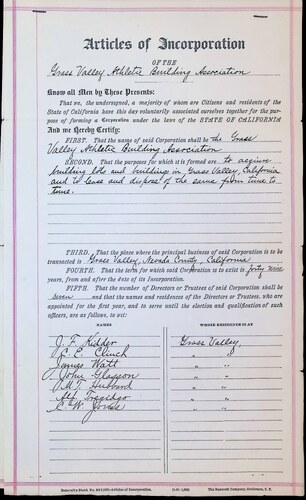 Articles of Incorporation
OF THE
Grass Valley Athletic Building Association
Know all Men by These Presents:
That we, the undersigned, a majority of whom are Citizens and residents of the
State of California have this day voluntarily associated ourselves together for the pur-
pose of forming a Corporation under the laws of the STATE OF CALIFORNIA
And we Hereby Certify:
FIRST. That the name of said Corporation shall be the Grass
Valley Athletic Building Association
SECOND. That the purposes for which it is formed are to acquire
building lots and buildings in Grass Valley, California
and to lease and dispose of the same from time to
time.
THIRD. That the place where the principal business of said Corporation is to be
transacted is Grass Valley, Nevada County, California
FOURTH. That the term for which said Corporation is to exist is forty nine
years, from and after the date of its incorporation.
FIFTH. That the number of Directors or Trustees of said Corporation shall be
seven and that the names and residences of the Directors or Trustees, who are
appointed for the first year, and to serve until the election and qualification of such
officers, are as follows, to wit:
NAMES WHOSE RESIDENCE IS AT
J. F. Kidder Grass Valley,
C. E. Clinch "
James Watt "
John Glasson "
M. T. Hubbard "
Alf. Tregidgo "
C. W. Jones "
Bancroft's Blank, No. Articles of Incorporation. The Bancroft Company, Stationers, S. F.